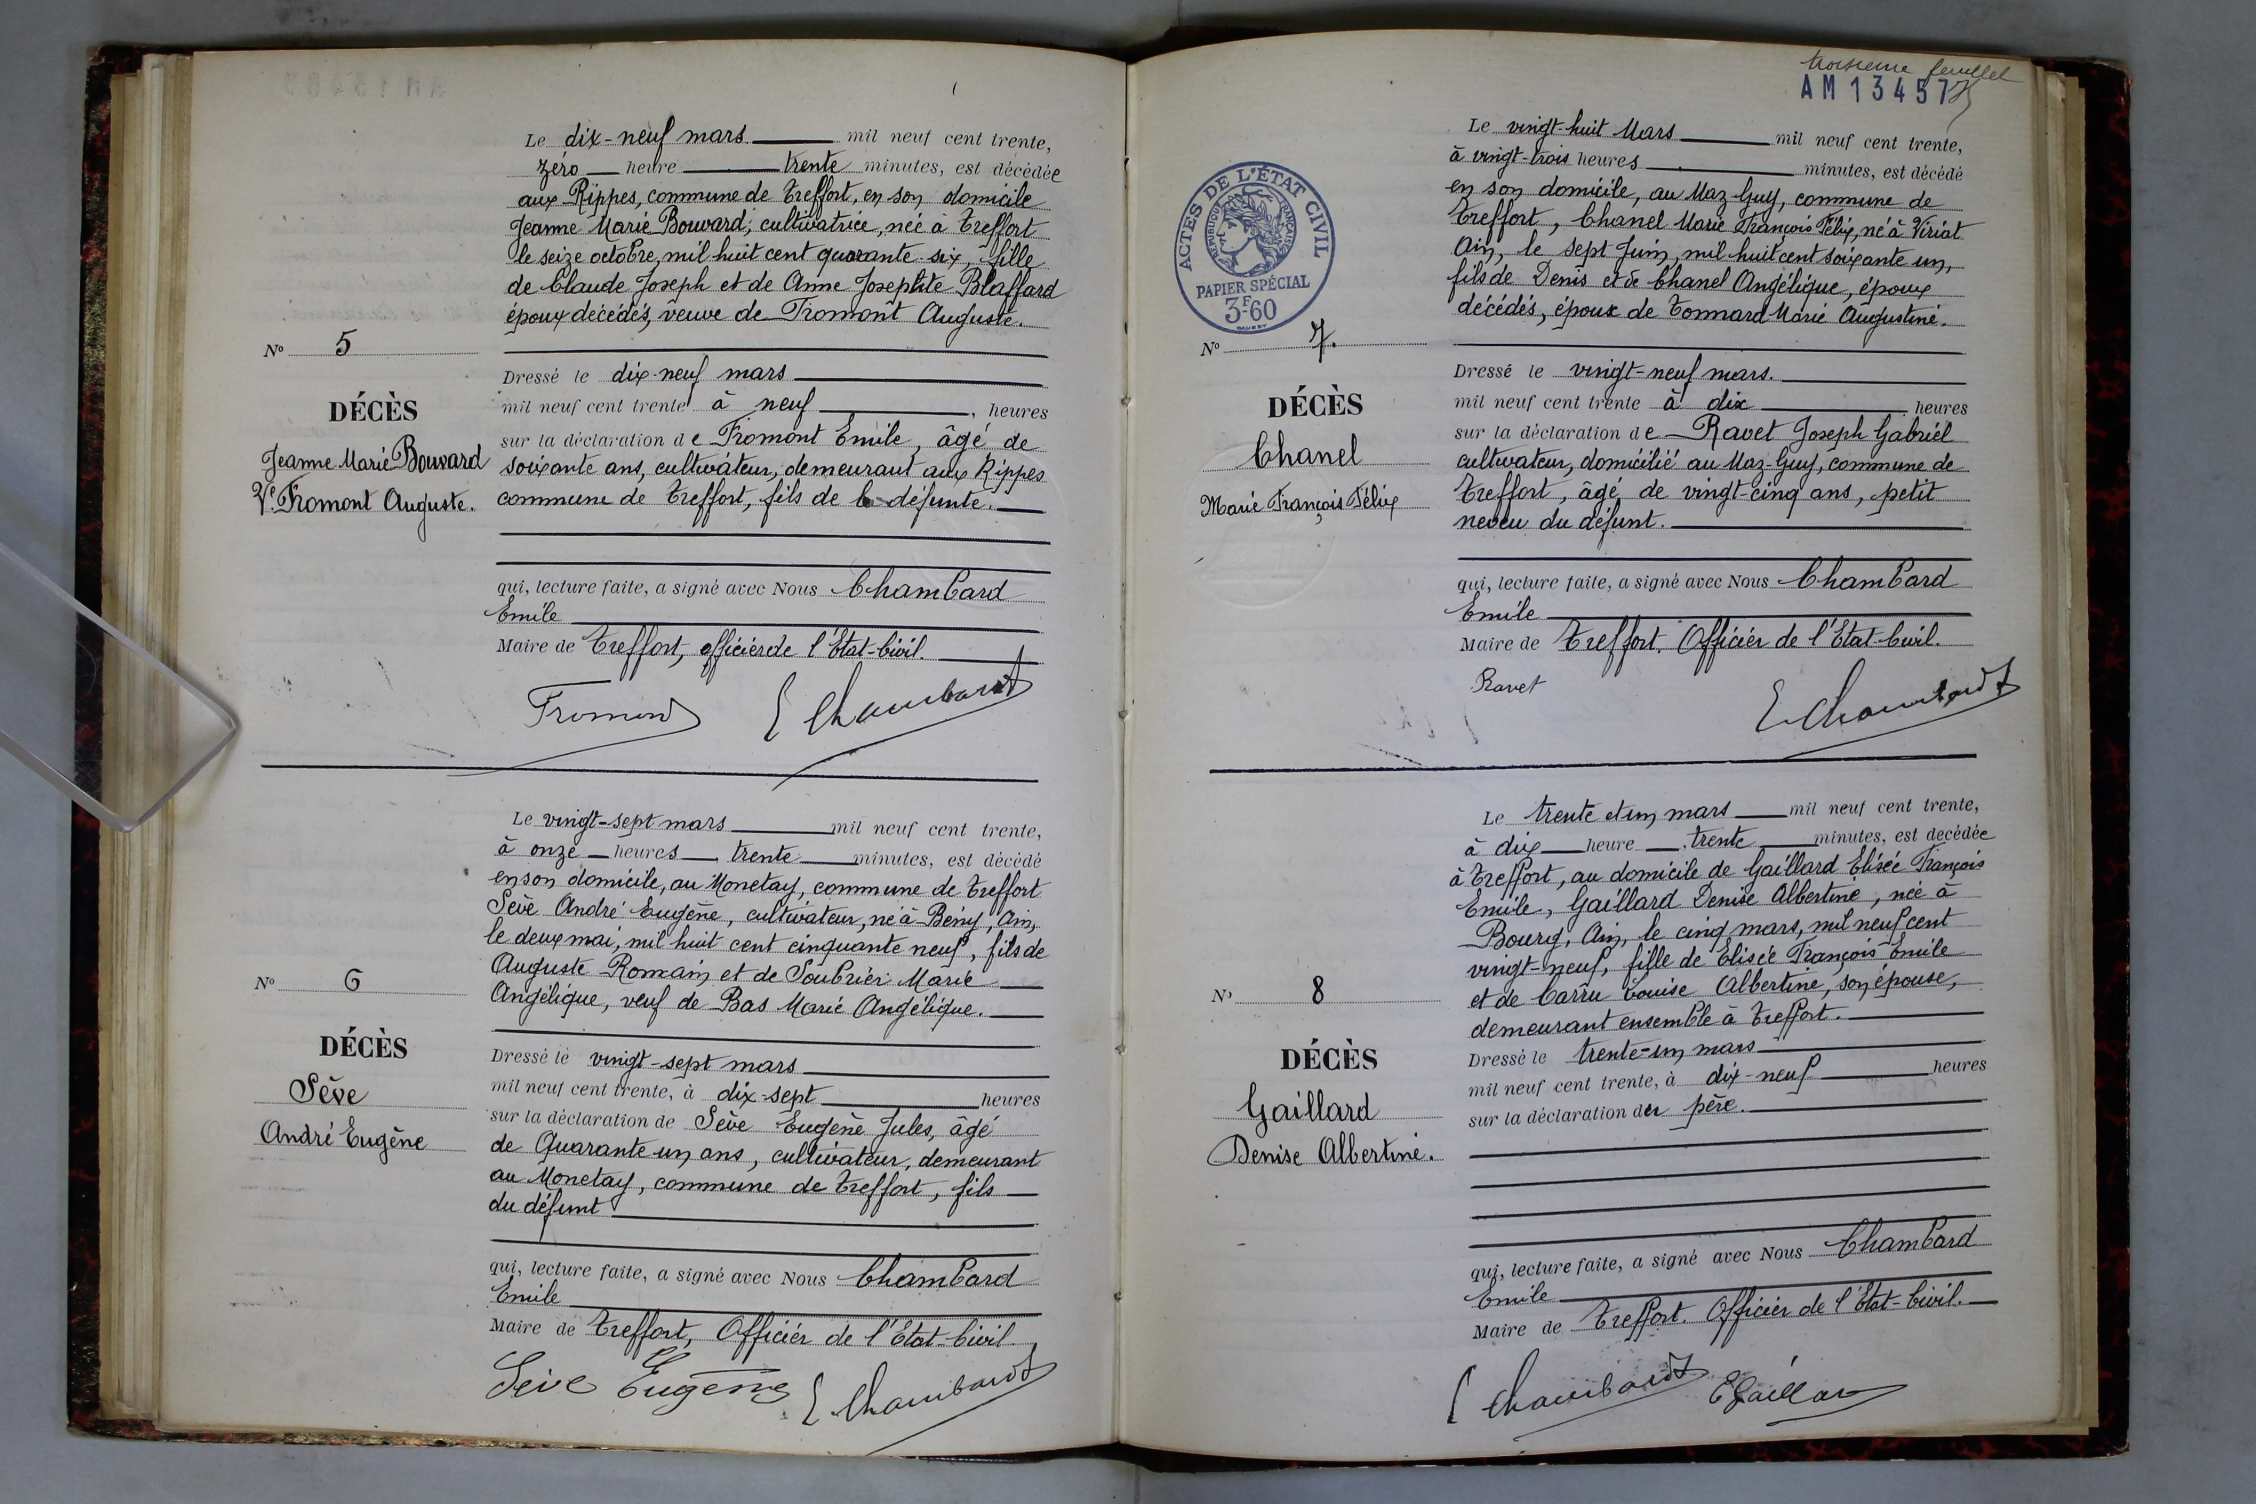 Le dix-neuf mars mil neuf cent trente,
zéro heure trente minutes, est décédée
aux Rippes, commune de Treffort, en son domicile
Jeanne Marie Bouvard, cultivatrice, née à Treffort
le seize octobre, mil huit cent quarante-six, fille
de Claude Joseph et de Anne Josephte Blaffard
époux décédés, veuve de Fromont Auguste.
No 5
DÉCÈS
Jeanne Marie Bouvard
Ve Fromont Auguste.
Dressé le dix-neuf mars
mil neuf cent trente à neuf, heures
sur la déclaration de Fromont Emile, âgé de
soixante ans, cultivateur, demeurant aux Rippes
commune de Treffort, fils de la défunte.
qui, lecture faite, a signé avec Nous Chambard
Emile
Maire de Treffort, officier de l'Etat-Civil.
Fromont E Chambard
Le vingt-sept mars mil neuf cent trente,
à onze heures trente minutes, est décédé
en son domicile, au Monetay, commune de Treffort
Sève André Eugène, cultivateur, né à Bény, Ain,
le deux mai, mil huit cent cinquante neuf, fils de
Auguste Romain et de Soubrier Marie
Angélique, veuf de Bas Marie Angélique.
No 6
DÉCÈS
Sève
André Eugène
Dressé le vingt-sept mars
mil neuf cent trente, à dix-sept heures
sur la déclaration de Sève Eugène Jules, âgé
de Quarante un ans, cultivateur, demeurant
au Monetay, commune de Treffort, fils
du défunt
qui, lecture faite, a signé avec Nous Chambard
Emile
Maire de Treffort, Officier de l'Etat-Civil
Seve Eugène E Chambard
troisième feuillet
AM 13457
ACTES DE L'ÉTAT CIVIL
RÉPUBLIQUE FRANÇAISE
PAPIER SPÉCIAL
3F60
Le vingt-huit Mars mil neuf cent trente,
à vingt-trois heures minutes, est décédé
en son domicile, au Maz-Guy, commune de
Treffort, Chanel Marie François Félix, né à Viriat
Ain, le sept Juin, mil huit cent soixante un,
fils de Denis et de Chanel Angélique, époux
décédés, époux de Tonnard Marie Augustine.
No 7.
DÉCÈS
Chanel
Marie François Félix
Dressé le vingt-neuf mars.
mil neuf cent trente à dix heures
sur la déclaration de Ravet Joseph Gabriel
cultivateur, domicilié au Maz-Guy, commune de
Treffort, âgé de vingt-cinq ans, petit
neveu du défunt.
qui, lecture faite, a signé avec Nous Chambard
Emile
Maire de Treffort. Officier de l'Etat-Civil.
Ravet
E Chambard
Le trente et un mars mil neuf cent trente,
à dix heure trente minutes, est decédée
à Treffort, au domicile de Gaillard Elisée François
Emile, Gaillard Denise Albertine, née à
Bourg, Ain, le cinq mars, mil neuf cent
vingt-neuf, fille de Elisée François Emile
et de Carru Louise Albertine, son épouse,
demeurant ensemble à Treffort.
No 8
DÉCÈS
Gaillard
Denise Albertine.
Dressé le trente-un mars
mil neuf cent trente, à dix-neuf heures
sur la déclaration du père.
qui, lecture faite, a signé avec Nous Chambard
Emile
Maire de Treffort. Officier de l'Etat-Civil.
E Chambard E Gaillard